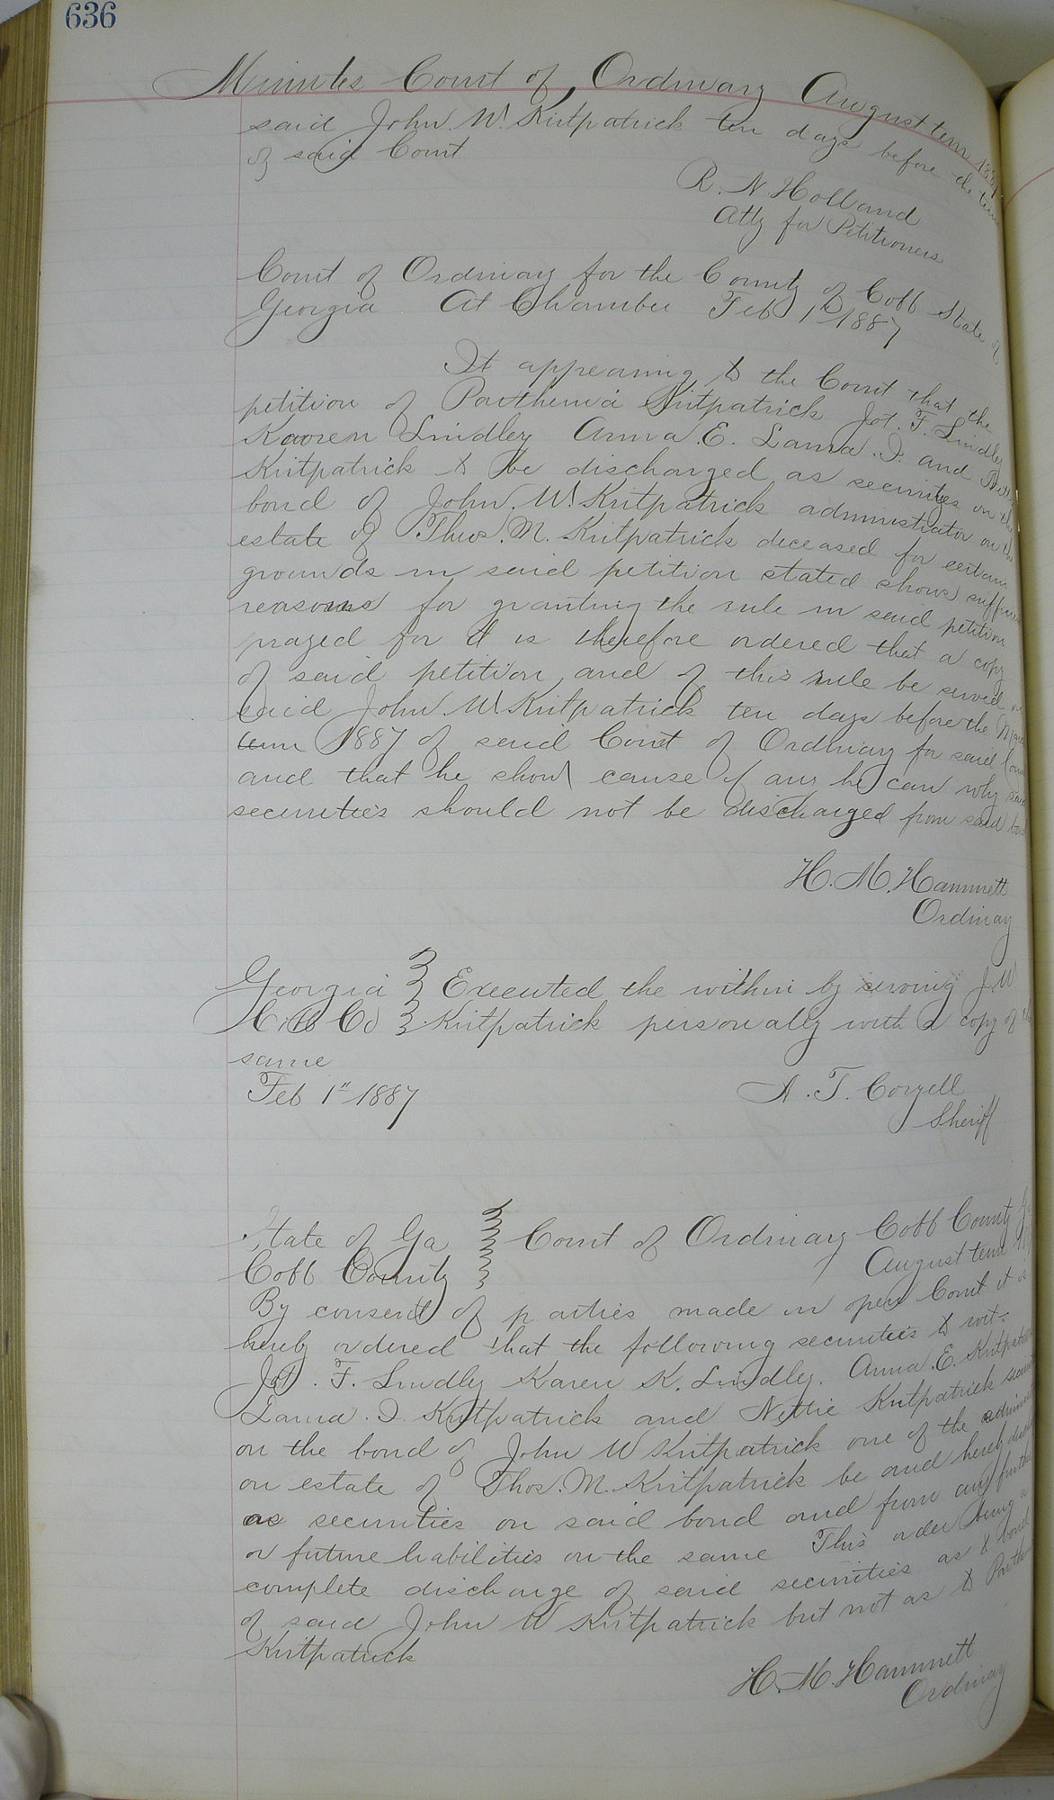 636
Minutes Court of Ordinary August term
said John W. Kirtpatrick ten days before the term
of said Court
R. N. Holland
Atty for Petitioners
Court of Ordinary for the County of Cobb State of
Georgia At Chamber Feb 1st 1887
It appearing to the Court that the
petition of Parthenia Kirtpatrick Jot. F. Lindley
Karen Lindley Anna E. Laura I. and
Kirtpatrick to be discharged as securities on the
bond of John W. Kirtpatrick administrator on the
estate of Thos. M. Kirtpatrick deceased for certain
grounds in said petition stated shows
reasons for granting the rule in said petition
prayed for it is therefore ordered that a copy
of said petition and of this rule be served on
said John W Kirtpatrick ten days before the
term 1887 of said Court of Ordinary for said
and that he show cause if any he can why said
securities should not be discharged from said
H. M. Hammett
Ordinary
Georgia } Executed the within by serving J. W
Cobb Co } Kirtpatrick personally with a copy of the
same
Feb 1" 1887 A. T. Coryell
Sheriff
State of Ga } Court of Ordinary Cobb County
Cobb County } August term
By consent of parties made in open Court it is
hereby ordered that the following securities to wit:
Jot. F. Lindley Karen K. Lindley. Anna. E. Kirtpatrick
Laura. I. Kirtpatrick and Nettie Kirtpatrick
on the bond of John W Kirtpatrick one of the
on estate of Thos. M. Kirtpatrick be and hereby
as securities on said bond and from any further
or future liabilities on the same This order being a
complete discharge of said securities as to bond
of said John W Kirtpatrick but not as to
Kirtpatrick
H. M. Hammett
Ordinary